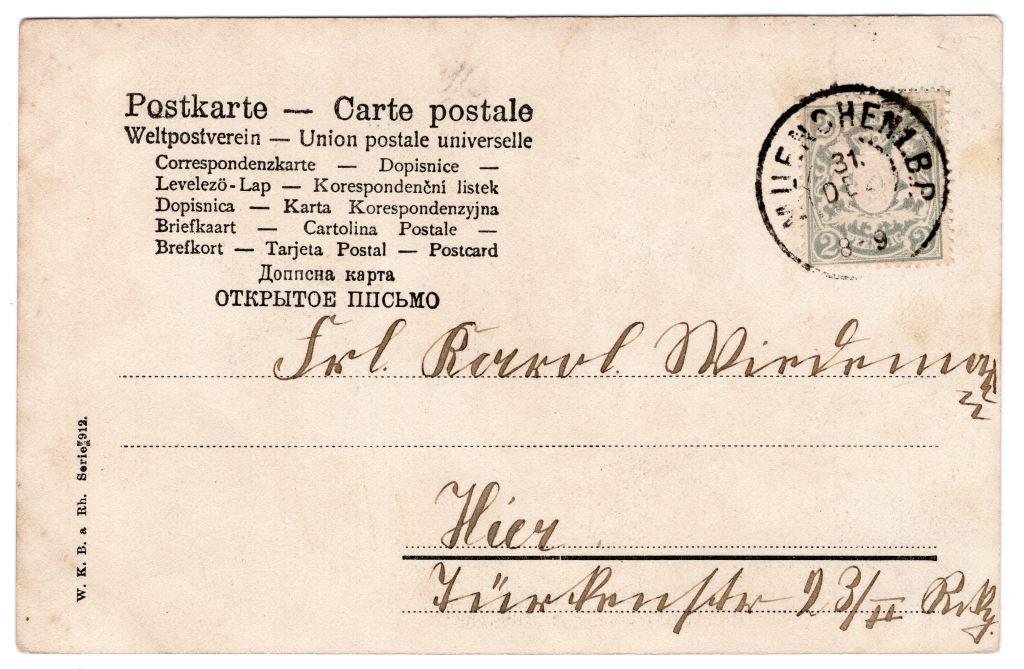 Postkarte — Carte postale
Weltpostverein — Union postale universelle
Correspondenzkarte — Dopisnice —
Levelező-Lap — Korespondenční listek
Dopisnica — Karta Korespondenzyjna
Briefkaart — Cartolina Postale —
Brefkort — Tarjeta Postal — Postcard
Дописна карта
ОТКРЫТОЕ ПИСЬМО
MUENCHEN 1. B.P.
31.
DE
8-9
2 2
Frl. Karol. Wiedemann
Hier
Türkenstr 23/II
W. K. B. a Rh. Serie 912.